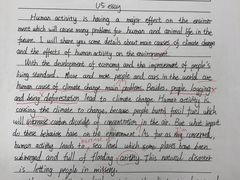 US essay
Human activity is having a major effect on the environ-
ment which will cause many problems for human and animal life in the
future. I will share you some details about main causes of climate change
and the effect of human activity on the environment.
With the development of economy and the improvement of people's
living standard. More and more people and cars in the world are
human cause of climate change main problem. Besides, people logging
and being deforestation lead to climate change. Human activity is
causing the climate to change, because people burn fossil fuel which
will increase carbon dioxide of concentration in the air. But what impact
do these behavior have on the environment. As far as I'm concerned,
human activity leads to sea level which some places have been
submerged and full of flooding calamity. This natural disaster
is letting people in misery.